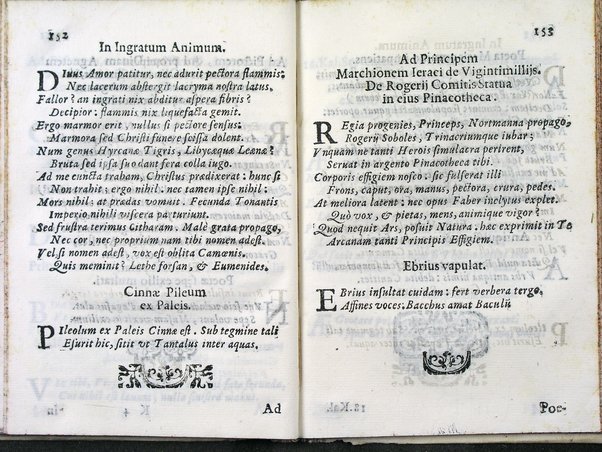 152
In Ingratum Animum.
Diuus Amor patitur, nec adurit pectora flammis:
Nec lacerum abstergit lacryma nostra latus.
Fallor? an ingrati nix abditur aspera fibris?
Decipior: flammis nix liquefacta gemit.
Ergo marmor erit, nullus si pectore sensus:
Marmora sed Christi funere scissa dolent.
Num genus Hyrcanæ Tigris, Libycæque Leænæ?
Bruta sed ipsa suo dant fera colla iugo.
Ad me cuncta traham, Christus prædixerat: hunc si
Non trahit; ergo nihil: nec tamen ipse nihil:
Mors nihil; at prædas vomuit. Fecunda Tonantis
Imperio nihili viscera parturiunt.
Sed frustra terimus Githaram. Malè grata propago,
Nec cor, nec proprium nam tibi nomen adest.
Vel si nomen adest, vox est oblita Camænis.
Quis meminit? Lethe forsan, & Eumenides.
Cinnæ Pileum
ex Paleis.
Pileolum ex Paleis Cinnæ est. Sub tegmine tali
Esurit hic, sitit vt Tantalus inter aquas.
Ad
153
Ad Principem
Marchionem Ieraci de Vigintimillijs.
De Rogerij Comitis Statua
in eius Pinacotheca.
Regia progenies, Princeps, Nortmanna propago,
Rogerij Soboles, Trinacriumque iubar;
Vnquam ne tanti Herois simulacra perirent,
Seruat in argento Pinacotheca tibi.
Corporis effigiem nosco: sic fulserat illi
Frons, caput, ora, manus, pectora, crura, pedes.
At meliora latent: nec opus Faber inclytus explet.
Quò vox, & pietas, mens, animique vigor?
Quod nequit Ars, posuit Natura: hæc exprimit in Te
Arcanam tanti Principis Effigiem.
Ebrius vapulat.
Ebrius insultat cuidam: fert verbera tergo.
Affines voces: Bacchus amat Baculũ
Poe-